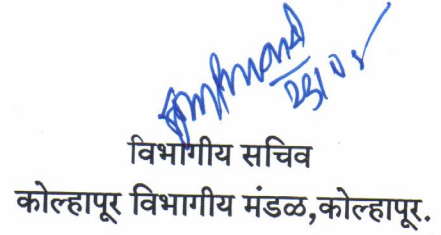 विभागीय सचिव
कोल्हापूर विभागीय मंडळ,कोल्हापूर.